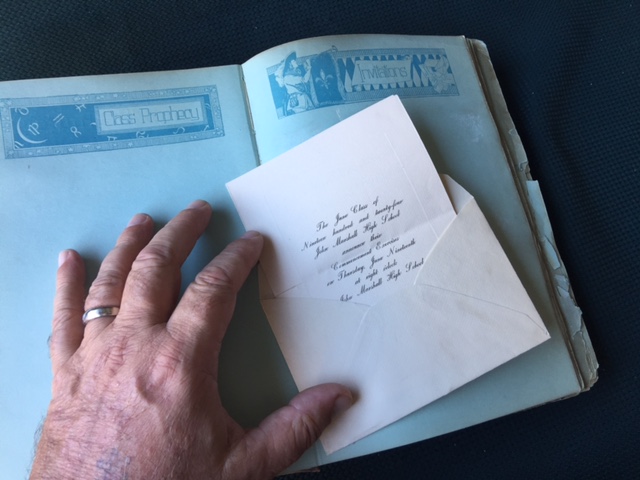 Class Prophecy
Invitations
The June Class of
Nineteen hundred and twenty-four
John Marshall High School
announce their
Commencement Exercises
on Thursday, June Nineteenth
at eight o'clock
John Marshall High School